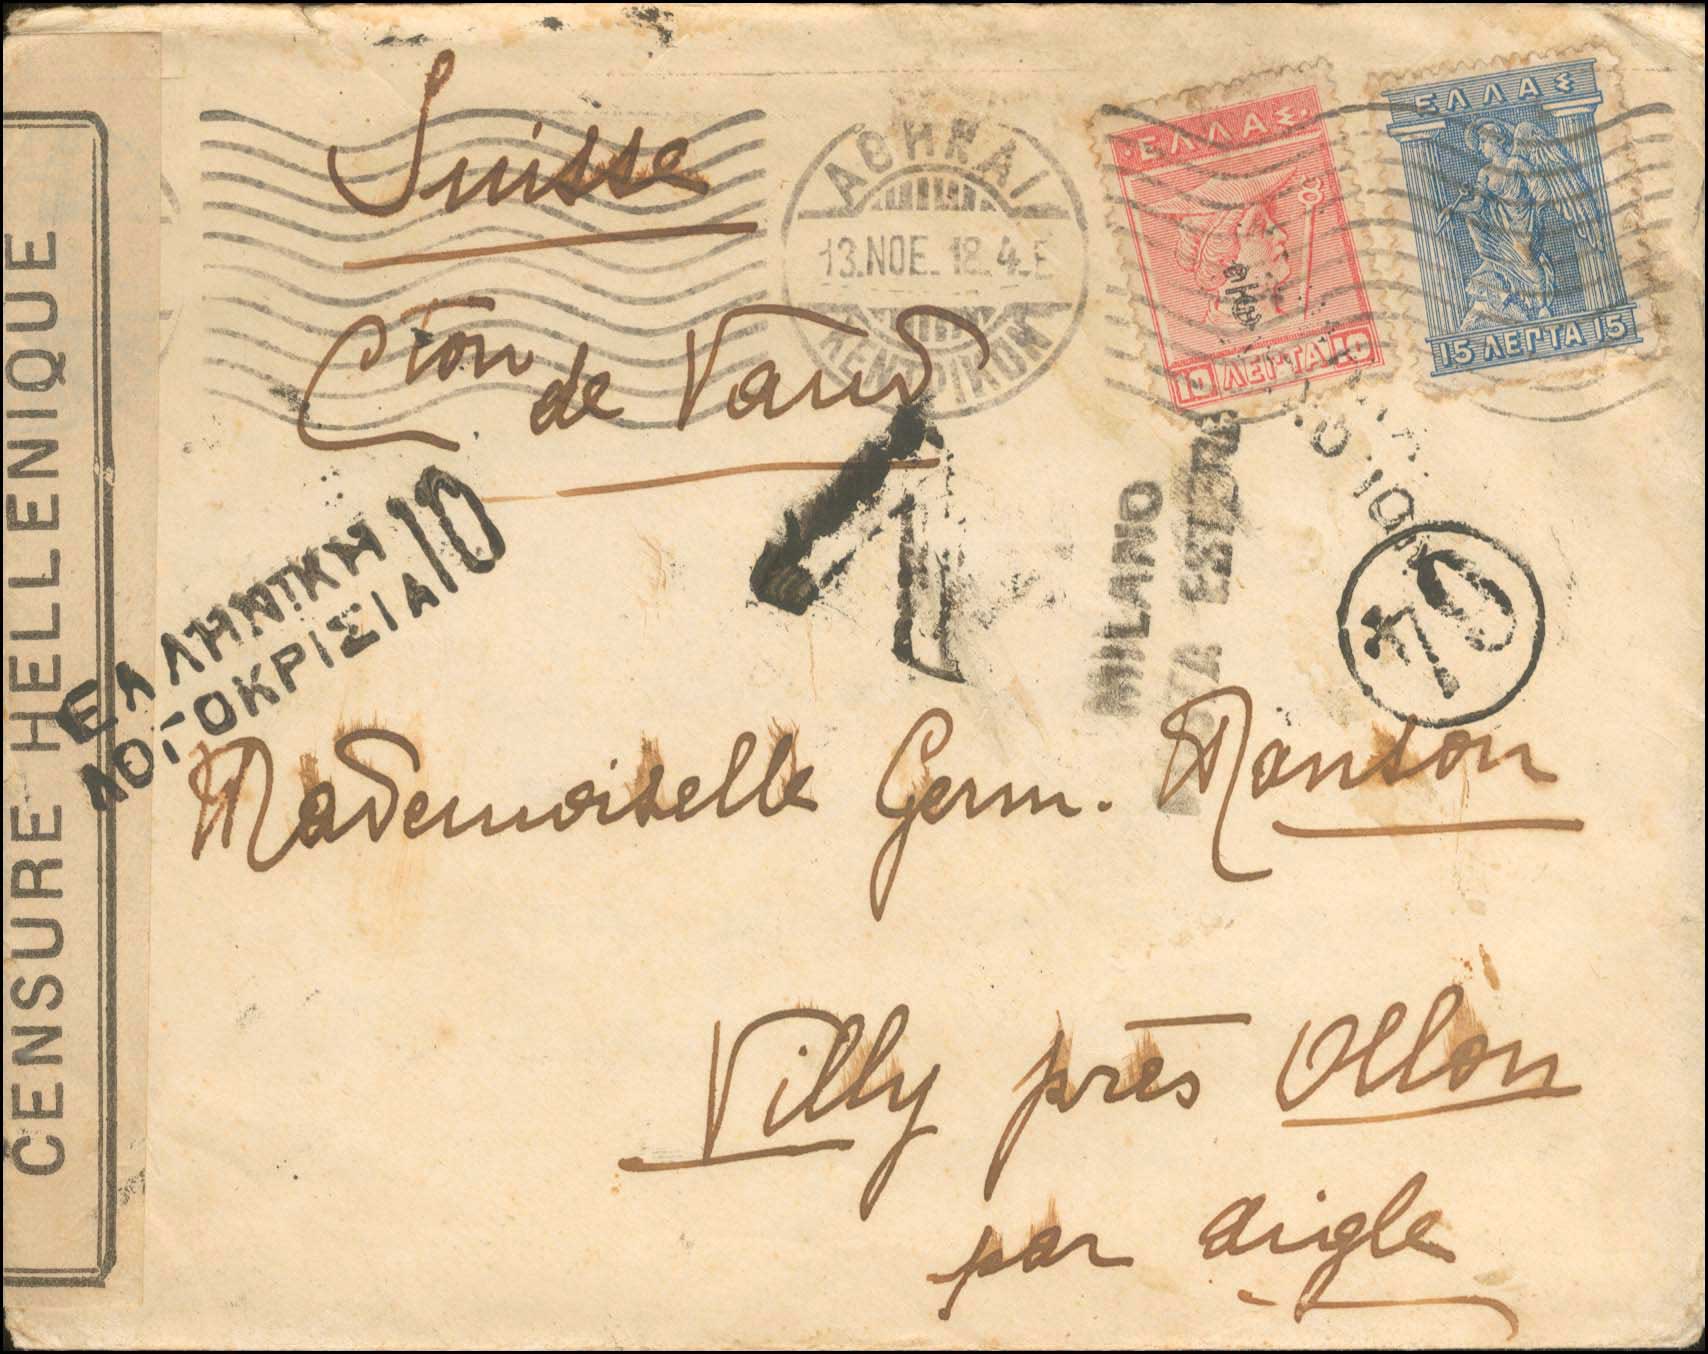 CENSURE HELLENIQUE
Suisse
Cton de Vaud
ΑΘΗΝΑΙ
13.ΝΟΕ. 18.4.Ε
ΚΕΝΤΡΙΚΟΝ
ΕΛΛΑΣ
10 ΛΕΠΤΑ 10
ΕΛΛΑΣ
15 ΛΕΠΤΑ 15
ΕΛΛΗΝΙΚΗ
ΛΟΓΟΚΡΙΣΙΑ
10
MILANO
POSTA ESTERA
Mademoiselle Germ. Monson
Villy près Ollon
par Aigle